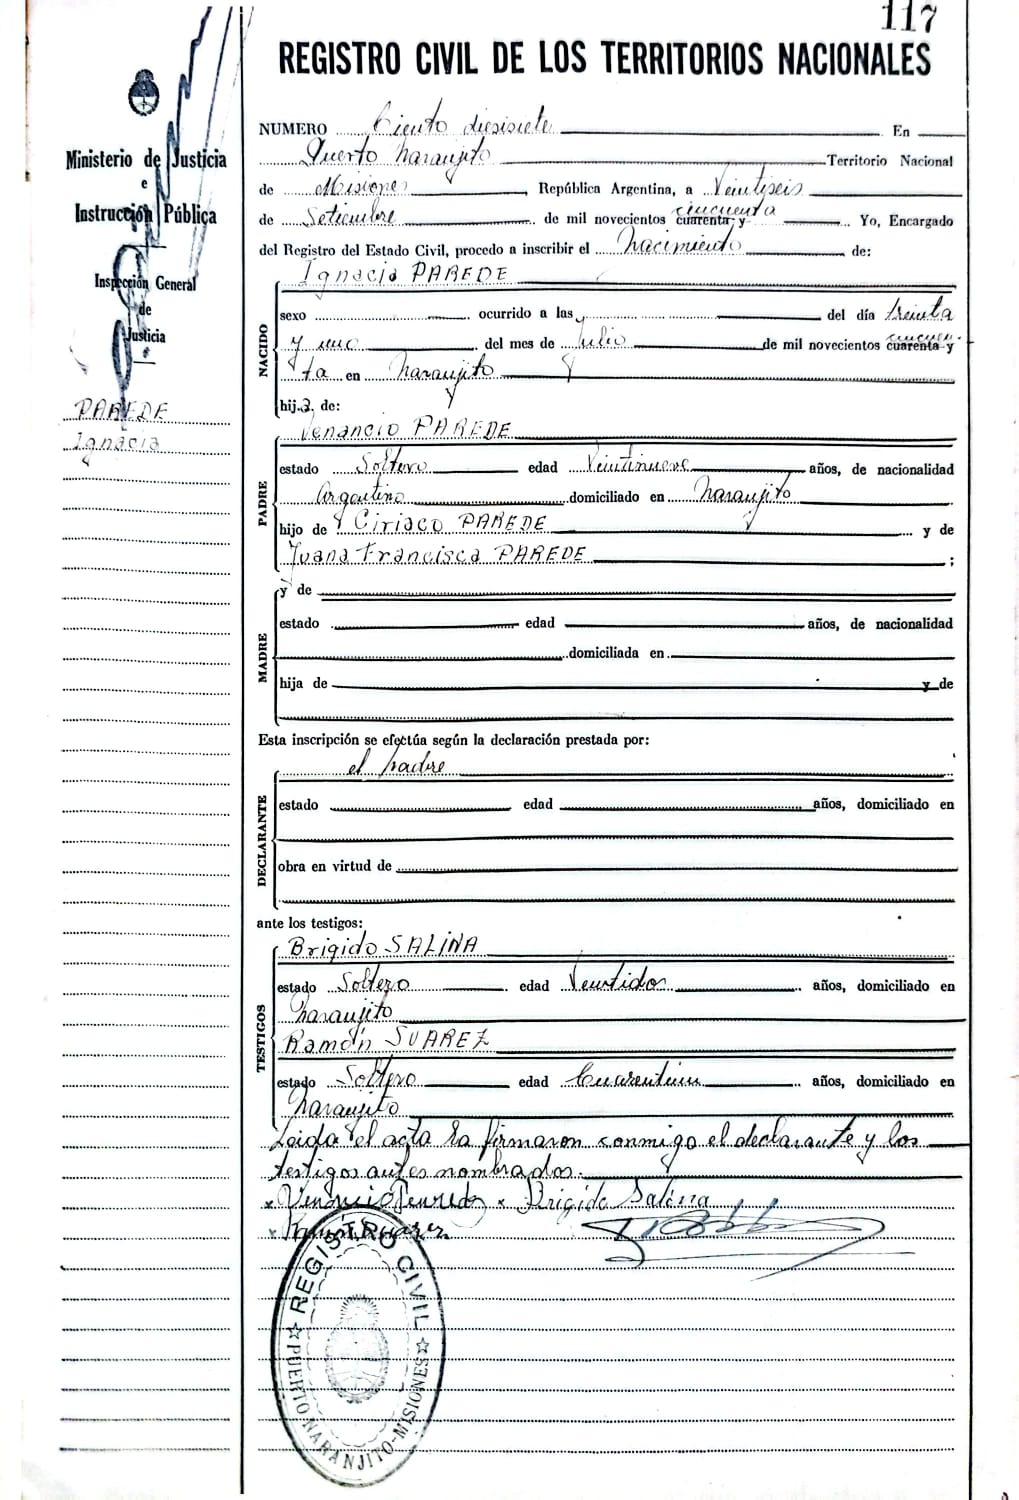 117
REGISTRO CIVIL DE LOS TERRITORIOS NACIONALES
Ministerio de Justicia
e
Instrucción Pública
Inspección General
de
Justicia
PAREDE
Ignacia
NUMERO Ciento diesisiete En
Puerto Naranjito Territorio Nacional
de Misiones, República Argentina, a Veintiseis
de Setiembre de mil novecientos cuarenta y cincuenta Yo, Encargado
del Registro del Estado Civil, procedo a inscribir el nacimiento de:
NACIDO
Ignacia PAREDE
sexo ocurrido a las del día treinta
y uno del mes de Julio de mil novecientos cuarenta y cincuen-
ta en Naranjito
hija de:
PADRE
Venancio PAREDE
estado Soltero edad Veintinueve años, de nacionalidad
Argentino domiciliado en Naranjito
hijo de Ciriaco PAREDE y de
Juana Francisca PAREDE ;
MADRE
y de
estado edad años, de nacionalidad
domiciliada en
hija de y de
Esta inscripción se efectúa según la declaración prestada por:
DECLARANTE
el padre
estado edad años, domiciliado en
obra en virtud de
ante los testigos:
TESTIGOS
Brigido SALINA
estado Soltero edad Veintidos años, domiciliado en
Naranjito
Ramón SUAREZ
estado Soltero edad años, domiciliado en
Naranjito
Leida el acta la firmaron conmigo el declarante y los
testigos antes nombrados.
Venancio Brigido Salina
Ramon Suarez
REGISTRO CIVIL
PUERTO NARANJITO-MISIONES